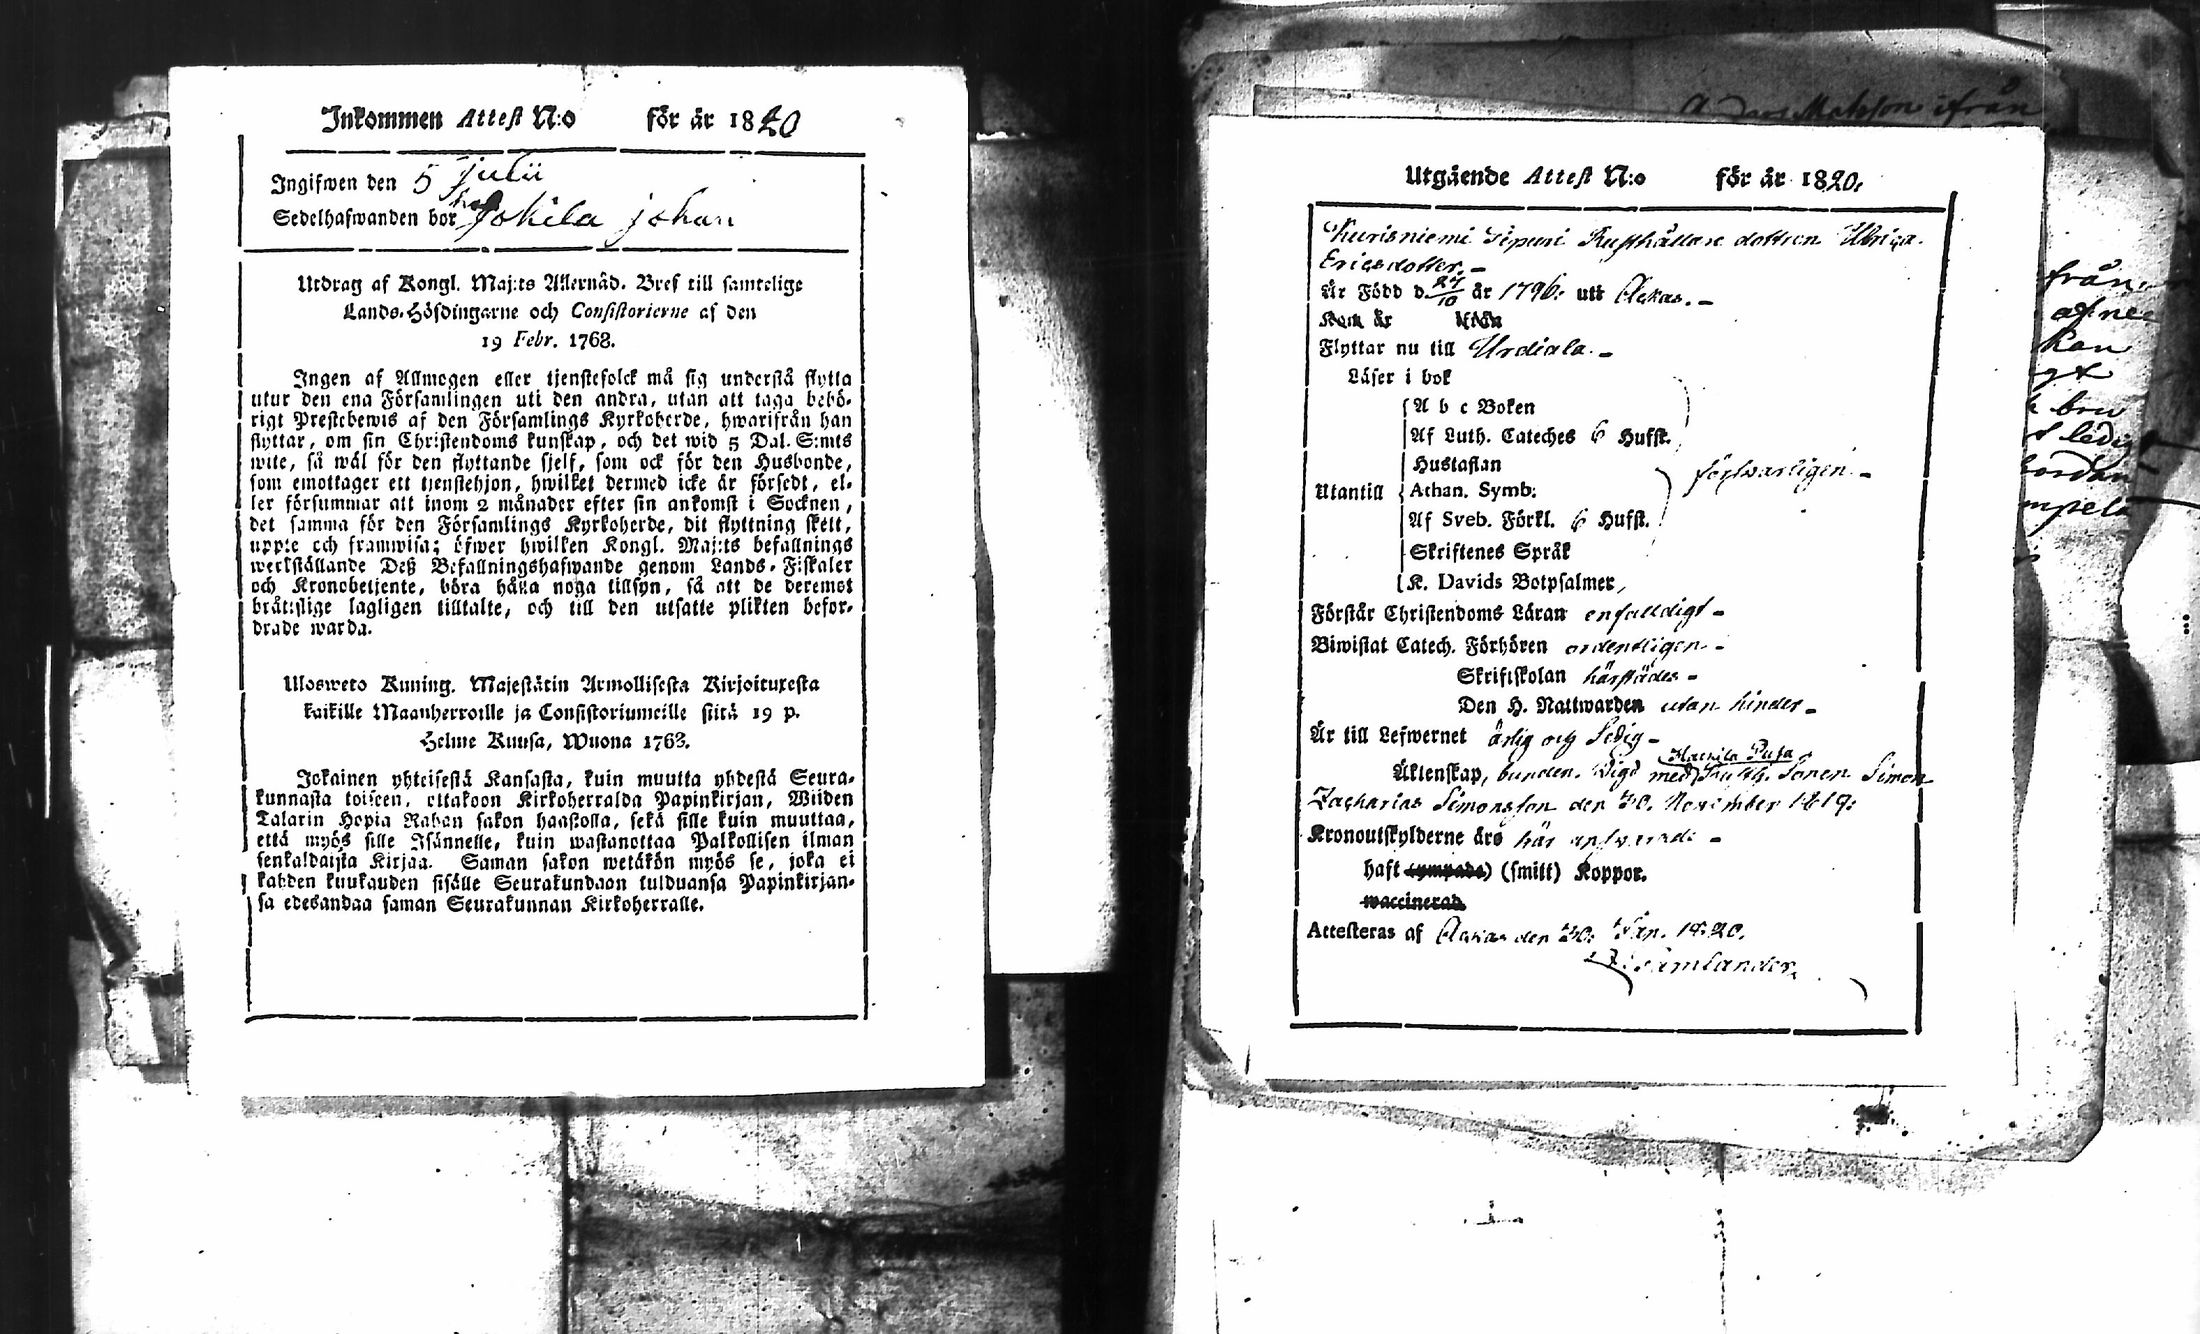 Inkommen Attest N:o för år 1820
Ingifwen den 5 Julii
Sedelhafwanden bor hos Jokila johan
Utdrag af Kongl. Maj:ts Allernåd. Bref till samtelige
Lands-Höfdingarne och Consistorierne af den
19 Febr. 1763.
Ingen af Allmogen eller tjenstefolck må sig understå flytta
utur den ena Församlingen uti den andra, utan att taga behö-
rigt Prestebewis af den Församlings Kyrkoherde, hwarifrån han
flyttar, om sin Christendoms kunskap, och det wid 5 Dal. S:mts
wite, så wäl för den flyttande sjelf, som ock för den Husbonde,
som emottager ett tjenstehjon, hwilket dermed icke är försedt, el-
ler försummar att inom 2 månader efter sin ankomst i Socknen,
det samma för den Församlings Kyrkoherde, dit flyttning skett,
uppte och framwisa; öfwer hwilken Kongl. Maj:ts befallnings
werkställande Deß Befallningshafwande genom Lands-Fiskaler
och Kronobetjente, böra hålla noga tillsyn, så att de deremot
bråtslige lagligen tilltalte, och till den utsatte plikten befor-
drade warda.
Ulosweto Kuning. Majestätin Armollisesta Kirjoituxesta
kaikille Maanherroille ja Consistoriumeille siitä 19 p.
Helme Kuusa, Wuona 1763.
Jokainen yhteisestä Kansasta, kuin muutta yhdestä Seura-
kunnasta toiseen, ottakoon Kirkoherralda Papinkirjan, Wiiden
Talarin Hopia Rahan sakon haastolla, sekä sille kuin muuttaa,
että myös sille Isännelle, kuin wastanottaa Palkollisen ilman
senkaldaista Kirjaa. Saman sakon wetäkön myös se, joka ei
kahden kuukauden sisälle Seurakundaan tulduansa Papinkirjan-
sa edesandaa saman Seurakunnan Kirkoherralle.
Anders Matsson ifrån
Utgående Attest N:o för år 1820.
Kurisniemi Sipuri Rusthållare dottren Ulrica
Ericsdotter. -
Är Född d. 27/10 år 1796. uti Ackas. -
Kom år ifrån
Flyttar nu till Urdiala. -
Läser i bok
A b c Boken
Af Luth. Cateches 6 Hufst.
Hustaflan
Utantill Athan. Symb: förswarligen. -
Af Sveb. Förkl. 6 Hufst.
Skriftenes Språk
K. Davids Botpsalmer,
Förstår Christendoms Läran enfalldigt -
Biwistat Catech. Förhören ordentligen. -
Skriftskolan härstädes -
Den H. Nattwarden utan hinder -
Är till Lefwernet ärlig och Sedig -
Äktenskap, bunden. Wigd med Rusth. Sonen Simon
Zacharias Simonsson den 30. November 1819.
Kronoutskylderne äro här answarade -
haft (ympade) (smitt) Koppor.
waccinerad.
Attesteras af Ackas den 30. Jan. 1820.
från
kan